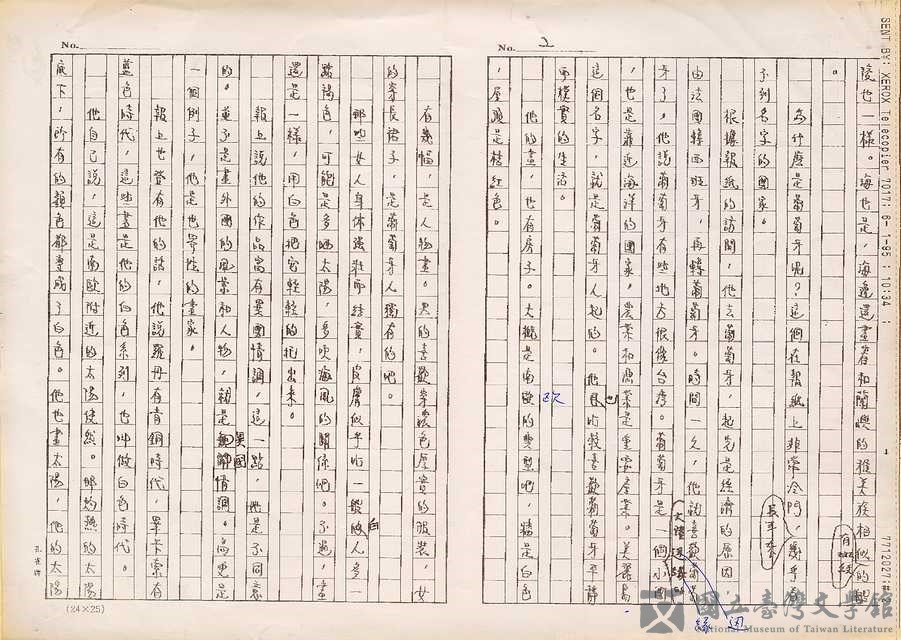 SENT BY: XEROX Telecopier 7017; 6-
-95 ; 10:34 ;
7712027;#
No. 2
陸也一樣。海也是，海邊還畫着和蘭嶼的雅美族相似的船
。
為什麼是葡萄牙呢？這個在報紙上非常冷門，幾乎看
子列名字的國家。
根據報紙的訪問，他去葡萄牙，起先是經濟的原因，
由法國轉西班牙，再轉葡萄牙。時間一久，他就喜歡葡萄
牙了。他說葡萄牙有些地方很像台灣。葡萄牙是一個小國
，也是靠近海洋的國家，農業和漁業是重要產業。美麗島
這個名字，就是葡萄牙人起的。他也比較喜歡葡萄牙平靜
而樸實的生活。
他的畫，也有房子。大概是南歐的典型吧，牆是白色
，屋頂是橙紅色。
歐
也
緣邊
No.
有幾幅，是人物畫。男的喜歡穿濃色厚實的服裝，女
的穿長裙子，是葡萄牙人獨有的吧。
那些女人身体強壯而結實，皮膚似乎比一般白人多一
點褐色，可能是多晒太陽，多吹海風的關係吧。不過，畫
還是一樣，用白色把它輕輕的抗出來。
報上說他的作品富有異國情調，這一點，他是不同意
的。並不是畫外國的風景和人物，就是異國情調。高更是
一個例子，他是也寫性的畫家。
報上也登有他的話，他說羅丹有青銅時代，畢卡索有
藍色時代，這些畫是他的白色系列，也叫做白色時代。
他自己說，這是南歐附近的太陽使然。那灼熱的太陽
底下，所有的顏色都變成了白色。他也畫太陽，他的太陽
(24×25)
國立臺灣文學館
National Museum of Taiwan Literature